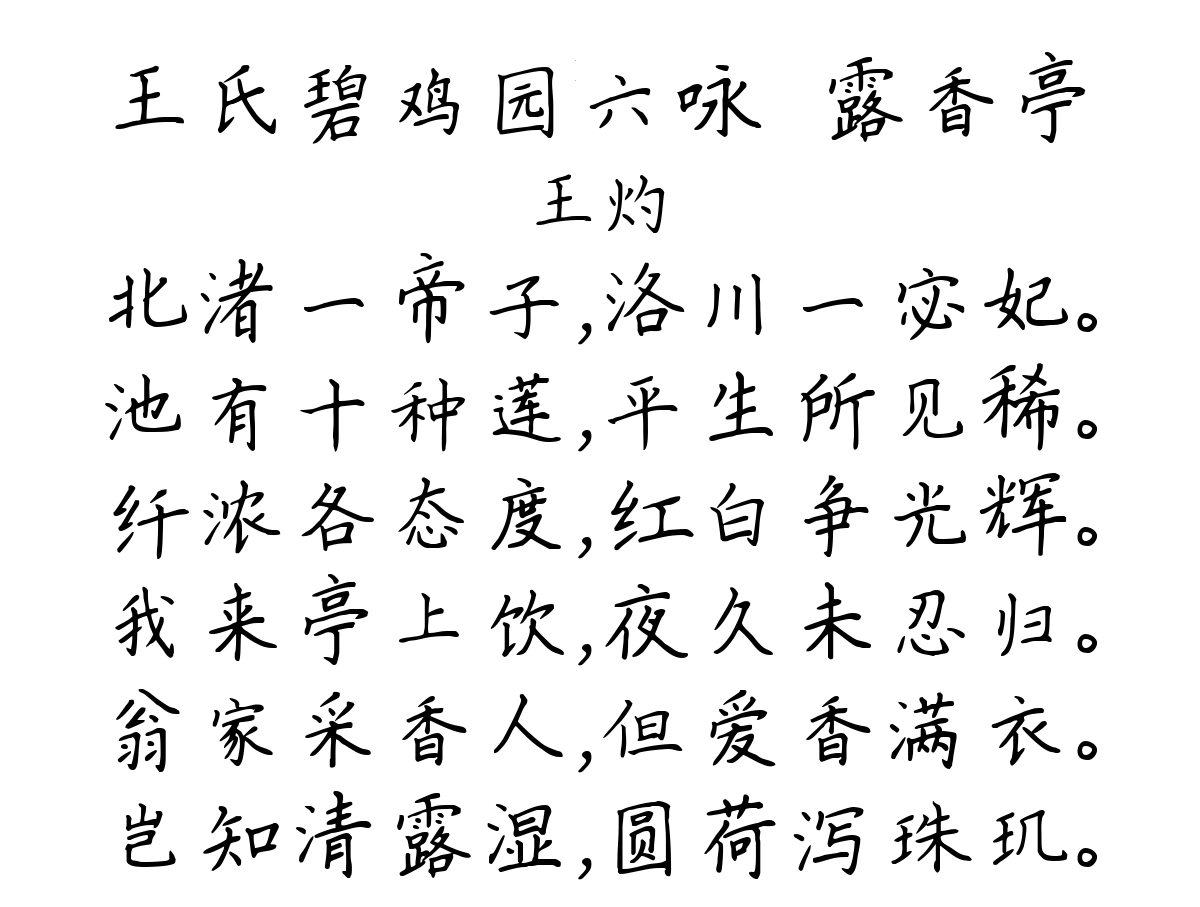 王氏碧鸡园六咏 露香亭
王灼
北渚一帝子,洛川一宓妃。
池有十种莲,平生所见稀。
纤浓各态度,红白争光辉。
我来亭上饮,夜久未忍归。
翁家采香人,但爱香满衣。
岂知清露湿,圆荷泻珠玑。